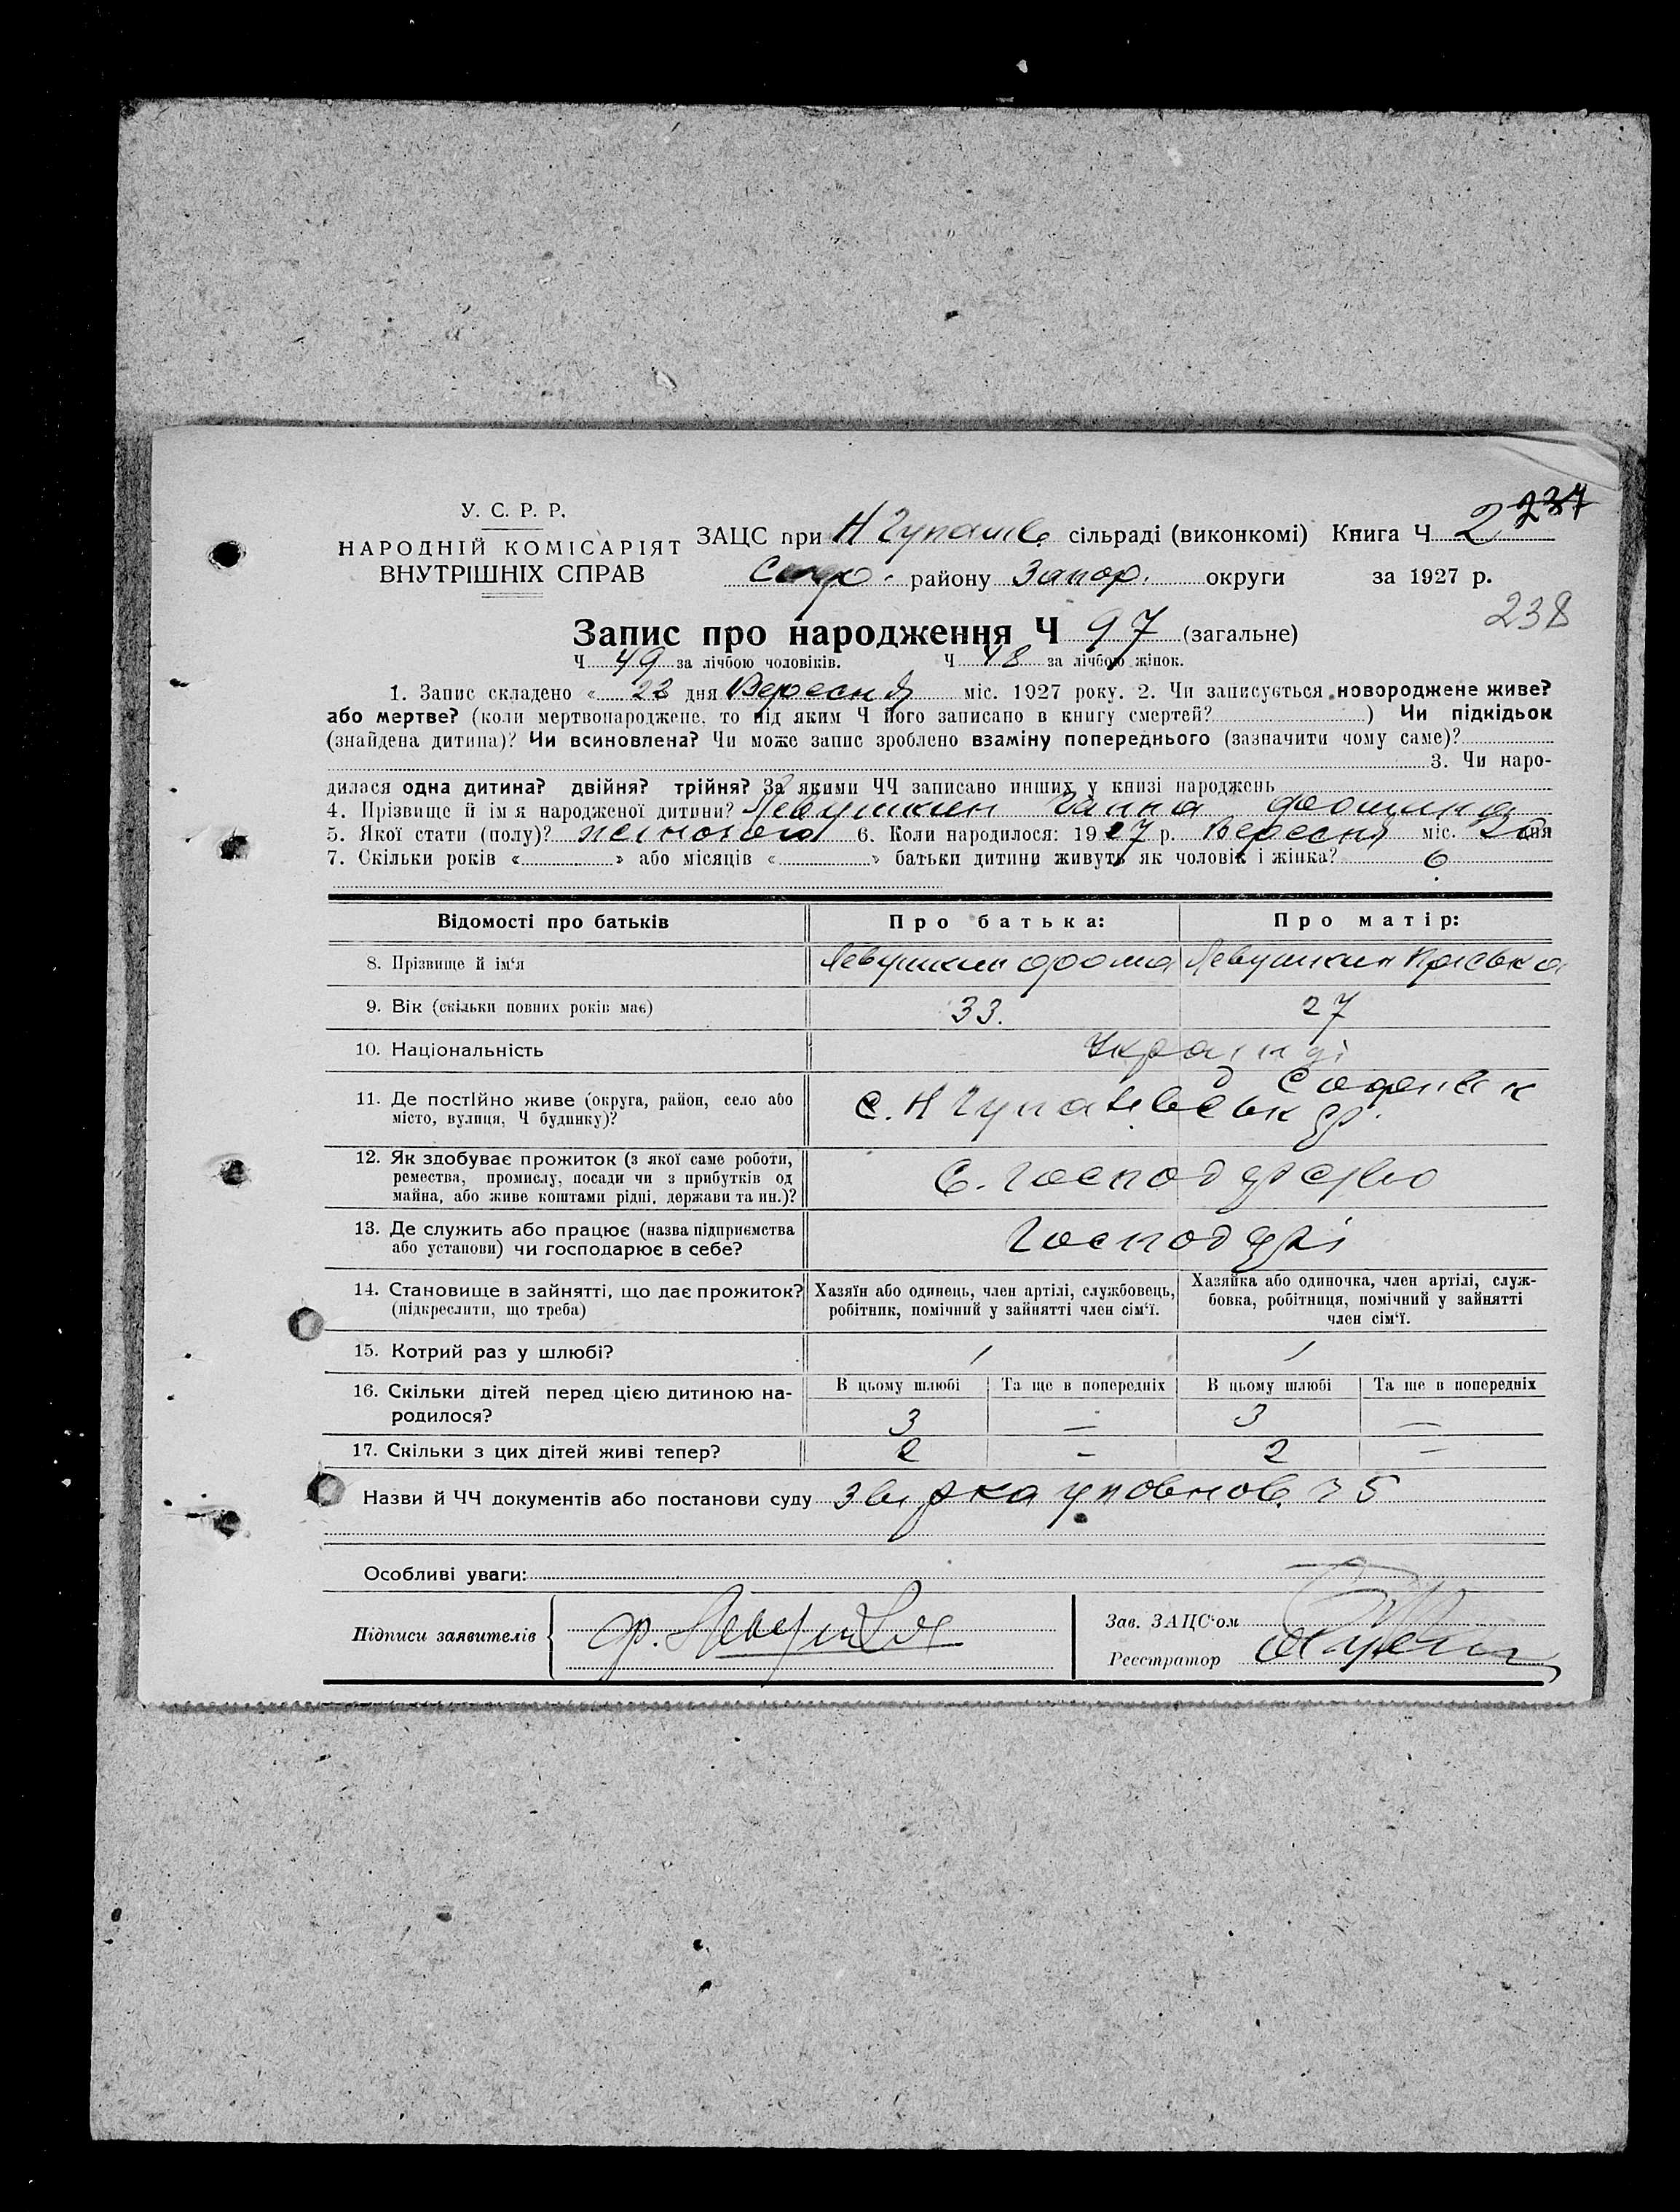 237
У. С. Р. Р.
НАРОДНІЙ КОМІСАРІЯТ
ВНУТРІШНІХ СПРАВ
ЗАЦС при сільраді (виконкомі) Книга Ч 2
району Запор. округи за 1927 р.
238
Запис про народження Ч 97 (загальне)
Ч 49 за лічбою чоловіків. Ч 48 за лічбою жінок.
1. Запис складено « дня Вересня міс. 1927 року. 2. Чи записується новороджене живе?
або мертве? (коли мертвонароджене, то під яким Ч його записано в книгу смертей? ) Чи підкідьок
(знайдена дитина)? Чи всиновлена? Чи може запис зроблено взаміну попереднього (зазначити чому саме)?
3. Чи наро-
дилася одна дитина? двійня? трійня? За якими ЧЧ записано инших у книзі народжень
4. Прізвище й ім я народженої дитини? Левушкин Ганна
5. Якої стати (полу)? 6. Коли народилося: 1927 р. Вересня міс. 20 дня
7. Скільки років « » або місяців « » батьки дитини живуть як чоловік і жінка? 6
Відомості про батьків Про батька: Про матір:
8. Прізвище й ім‘я Левушкин Левушкин Пріська
9. Вік (скільки повних років має) 33. 27
10. Національність Українці
11. Де постійно живе (округа, район, село або
місто, вулиця, Ч будинку)?
12. Як здобуває прожиток (з якої саме роботи,
ремества, промислу, посади чи з прибутків од
майна, або живе коштами рідні, держави та ин.)?
13. Де служить або працює (назва підприємства
або установи) чи господарює в себе?
14. Становище в зайнятті, що дає прожиток? Хазяїн або одинець, член артілі, службовець, Хазяйка або одиночка, член артілі, служ-
(підкреслити, що треба) робітник, помічний у зайнятті член сім‘ї. бовка, робітниця, помічний у зайнятті
член сім‘ї.
15. Котрий раз у шлюбі? 1 1
16. Скільки дітей перед цією дитиною на- В цьому шлюбі Та ще в попередніх В цьому шлюбі Та ще в попередніх
родилося? 3 — 3 —
17. Скільки з цих дітей живі тепер? 2 – 2 –
Назви й ЧЧ документів або постанови суду
Особливі уваги:
Підписи заявителів
Зав. ЗАЦС‘ом
Реєстратор